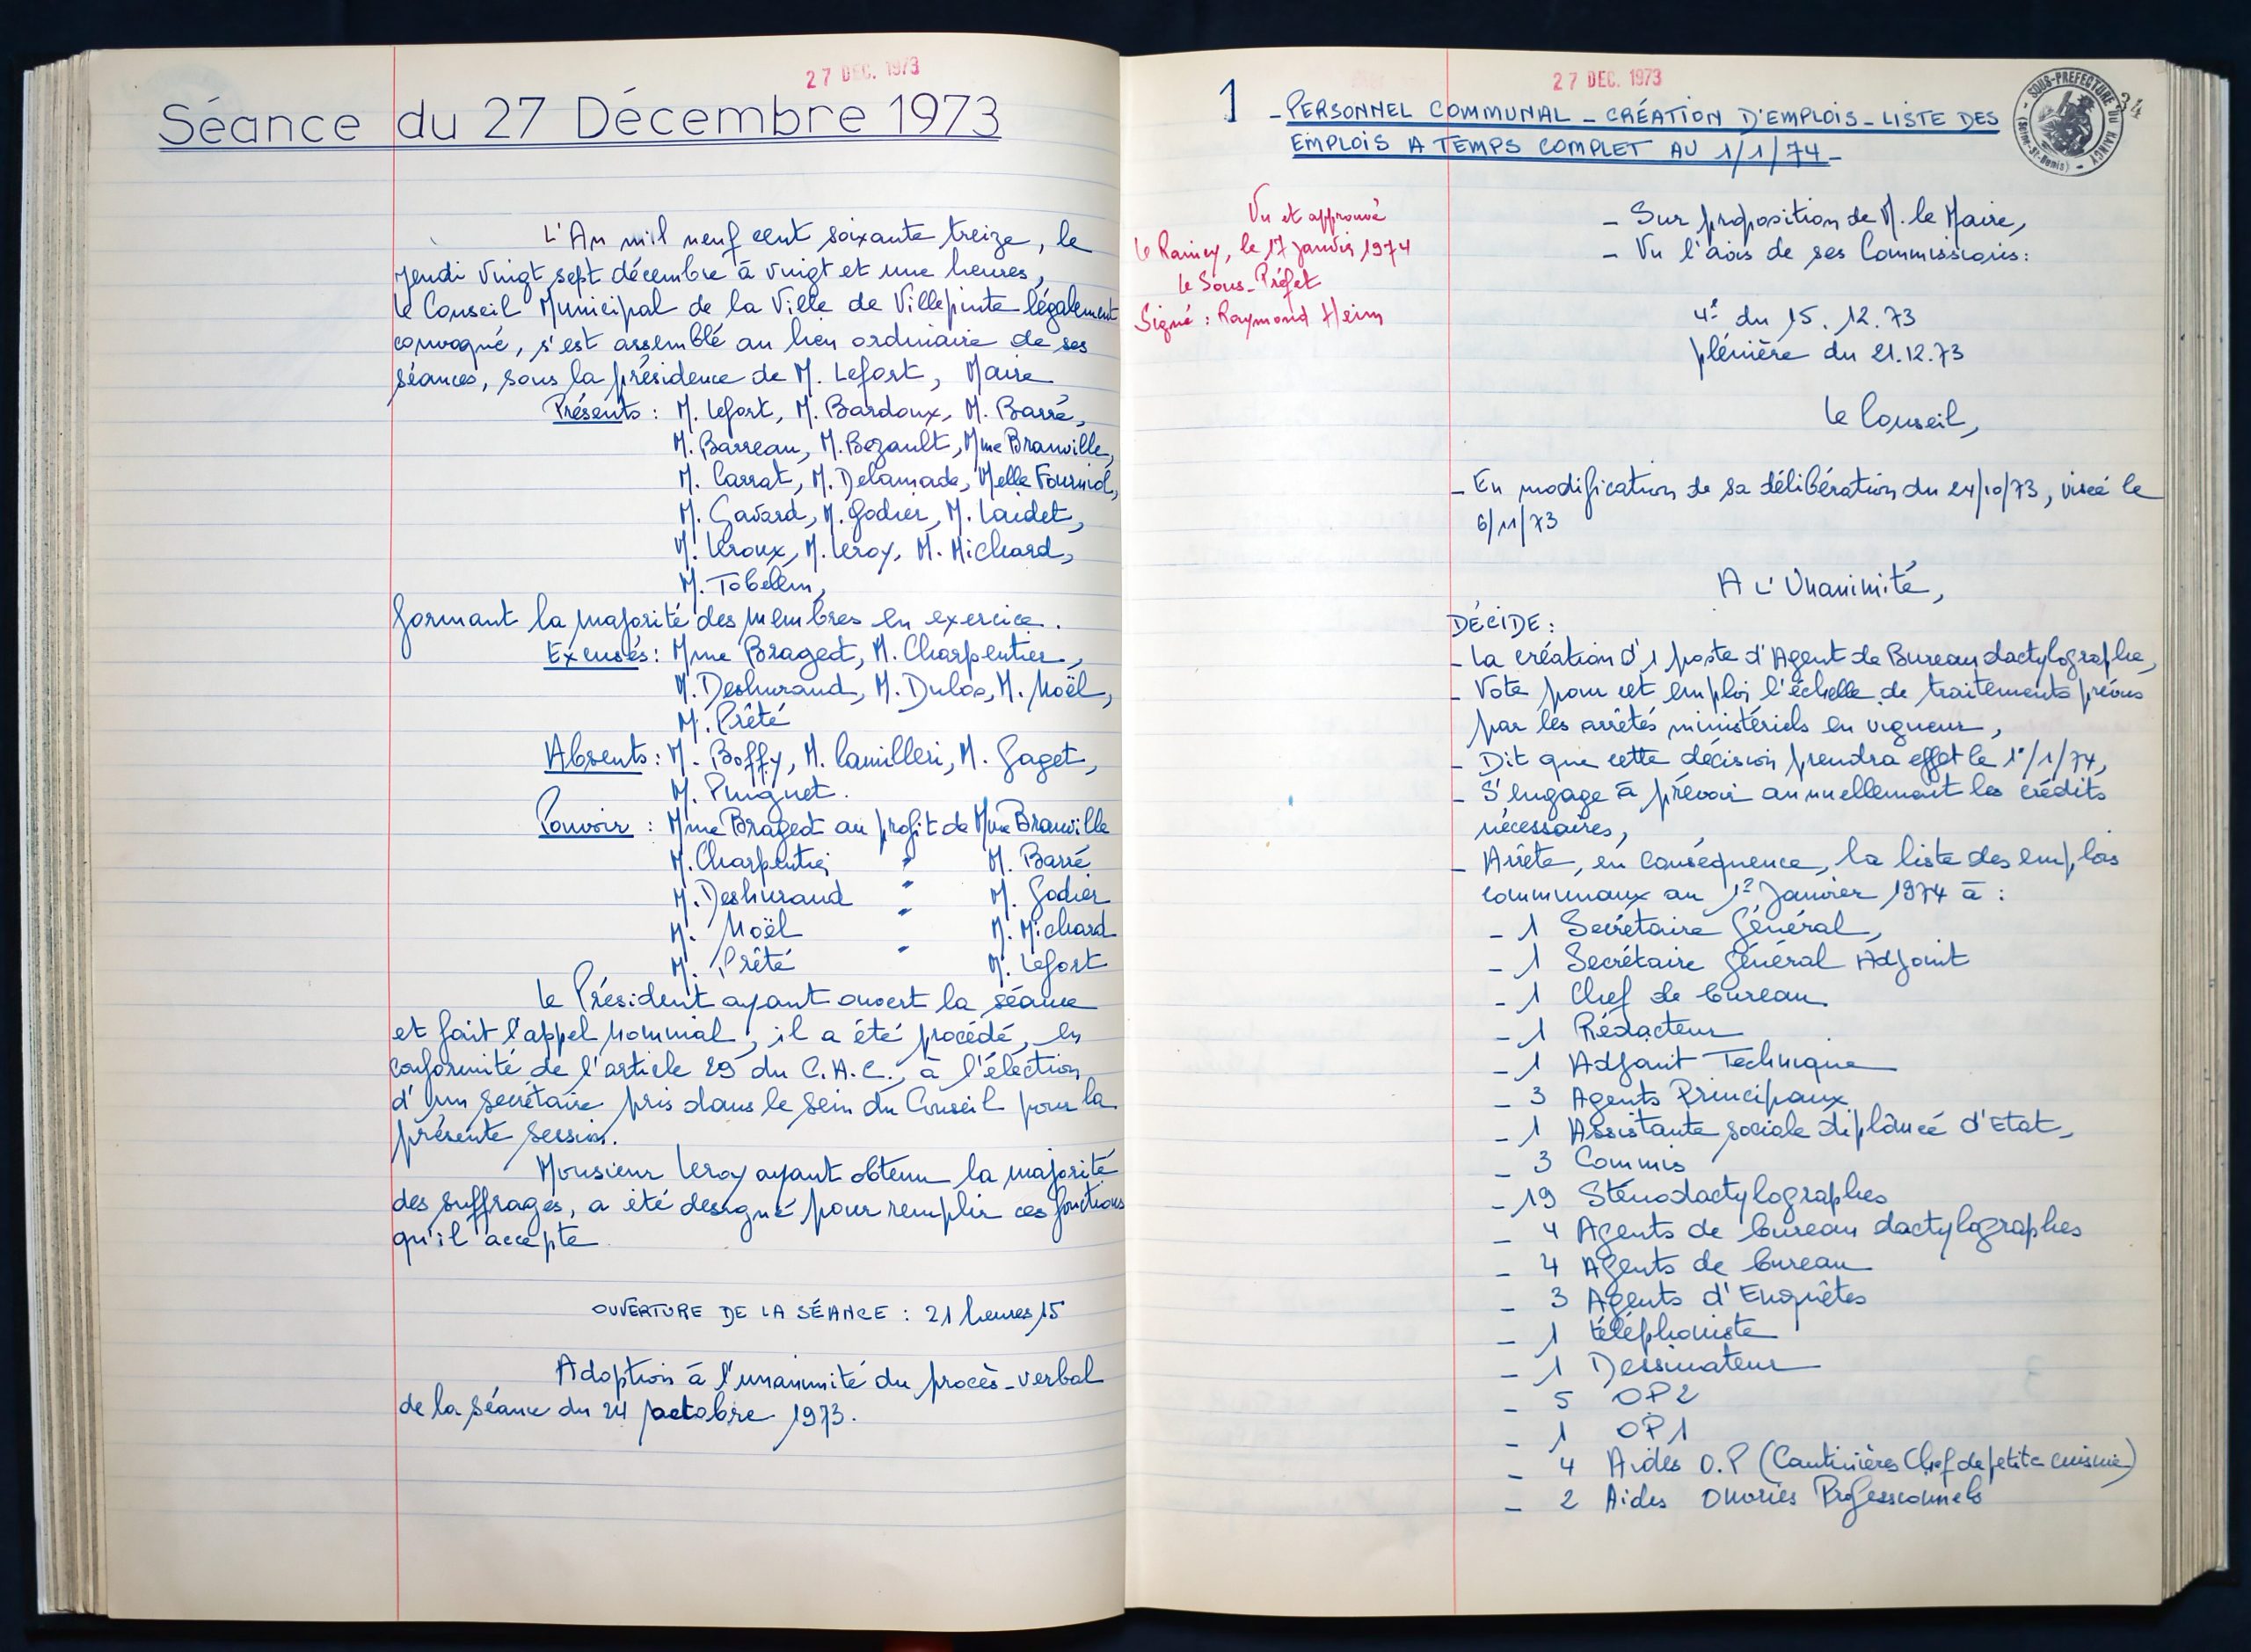 27 DEC. 1973
Séance du 27 Décembre 1973
L'An mil neuf cent soixante treize, le
jeudi vingt sept décembre à vingt et une heures,
le Conseil Municipal de la Ville de Villepinte légalement
convoqué, s'est assemblé au lieu ordinaire de ses
séances, sous la présidence de M. Lefort, Maire
Présents : M. Lefort, M. Bardoux, M. Barré,
M. Barreau, M. Bezault, Mme Branville,
M. Carrat, M. Delamade, Melle Fourniol,
M. Gavard, M. Godier, M. Laidet,
M. Leroux, M. Leroy, M. Michard,
M. Tobelem,
formant la majorité des membres en exercice.
Excusés : Mme Braged, M. Charpentier,
M. Deshuraud, M. Dulos, M. Noël,
M. Prêté
Absents : M. Boffy, M. Camilleri, M. Gaget,
M. Puignet.
Pouvoir : Mme Braged au profit de Mme Branville
M. Charpentier " M. Barré
M. Deshuraud " M. Godier
M. Noël " M. Michard
M. Prêté " M. Lefort
Le Président ayant ouvert la séance
et fait l'appel nominal, il a été procédé, en
conformité de l'article 29 du C.A.C., à l'élection
d'un secrétaire pris dans le sein du Conseil pour la
présente session.
Monsieur Leroy ayant obtenu la majorité
des suffrages, a été désigné pour remplir ces fonctions
qu'il accepte
OUVERTURE DE LA SÉANCE : 21 heures 15
Adoption à l'unanimité du procès-verbal
de la séance du 24 octobre 1973.
27 DEC. 1973
SOUS-PREFECTURE DU RAINCY
(Seine-St-Denis)
34
1 - PERSONNEL COMMUNAL - CRÉATION D'EMPLOIS - LISTE DES
EMPLOIS A TEMPS COMPLET AU 1/1/74 -
Vu et approuvé
Le Raincy, le 17 janvier 1974
le Sous-Préfet
Signé : Raymond Heim
- Sur proposition de M. le Maire,
- Vu l'avis de ses Commissions :
4è du 15.12.73
plénière du 21.12.73
Le Conseil,
- En modification de sa délibération du 24/10/73, visée le
6/11/73
A L'Unanimité,
DÉCIDE :
- La création d'1 poste d'Agent de Bureau dactylographe,
- Vote pour cet emploi l'échelle de traitements prévus
par les arrêtés ministériels en vigueur,
- Dit que cette décision prendra effet le 1°/1/74,
- S'engage à prévoir annuellement les crédits
nécessaires,
- Arrête, en conséquence, la liste des emplois
communaux au 1er Janvier 1974 à :
- 1 Secrétaire Général,
- 1 Secrétaire Général Adjoint
- 1 Chef de bureau
- 1 Rédacteur
- 1 Adjoint Technique
- 3 Agents Principaux
- 1 Assistante sociale diplômée d'Etat,
- 3 Commis
- 19 Sténodactylographes
- 4 Agents de bureau dactylographes
- 4 Agents de bureau
- 3 Agents d'Enquêtes
- 1 téléphoniste
- 1 Dessinateur
- 5 OP2
- 1 OP1
- 4 Aides O.P (Cantinières Chef de petite cuisine)
- 2 Aides Ouvriers Professionnels